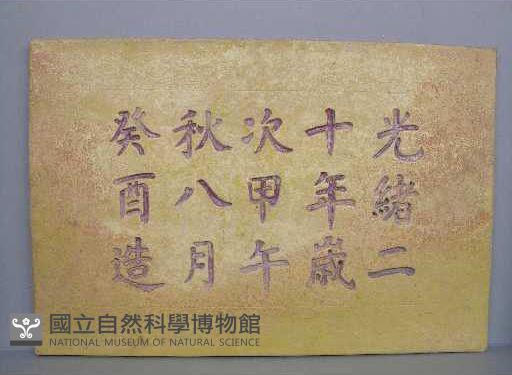 光緒二
十年歲
次甲午
秋八月
癸酉造
國立自然科學博物館
NATIONAL MUSEUM OF NATURAL SCIENCE